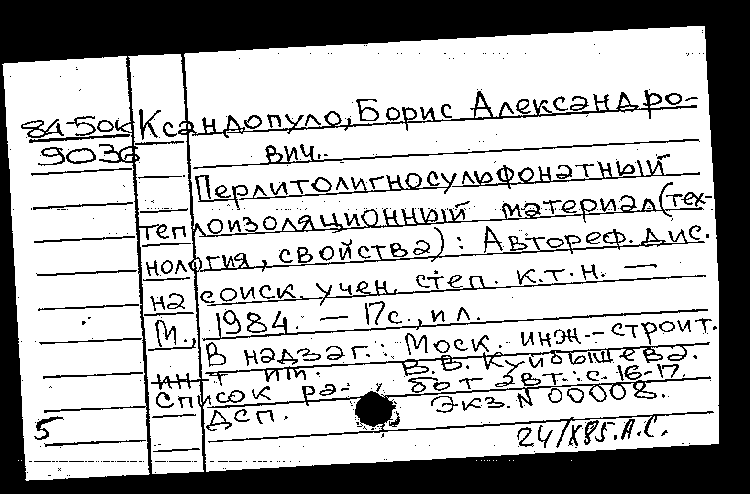 84-50к Ксандопуло, Борис Александро-
9036 вич.
Перлитолигносульфонатный
теплоизоляционный материал (тех-
нология, свойства) : Автореф. дис.
на соиск. учен. степ. к.т.н. —
М., 1984. — 17с., ил.
В надзаг.: Моск. инж.-строит.
ин-т им. В.В. Куйбышева.
Список ра- бот авт.: с. 16-17.
ДСП. Экз. N 00008.
5
24/X85. А.С.